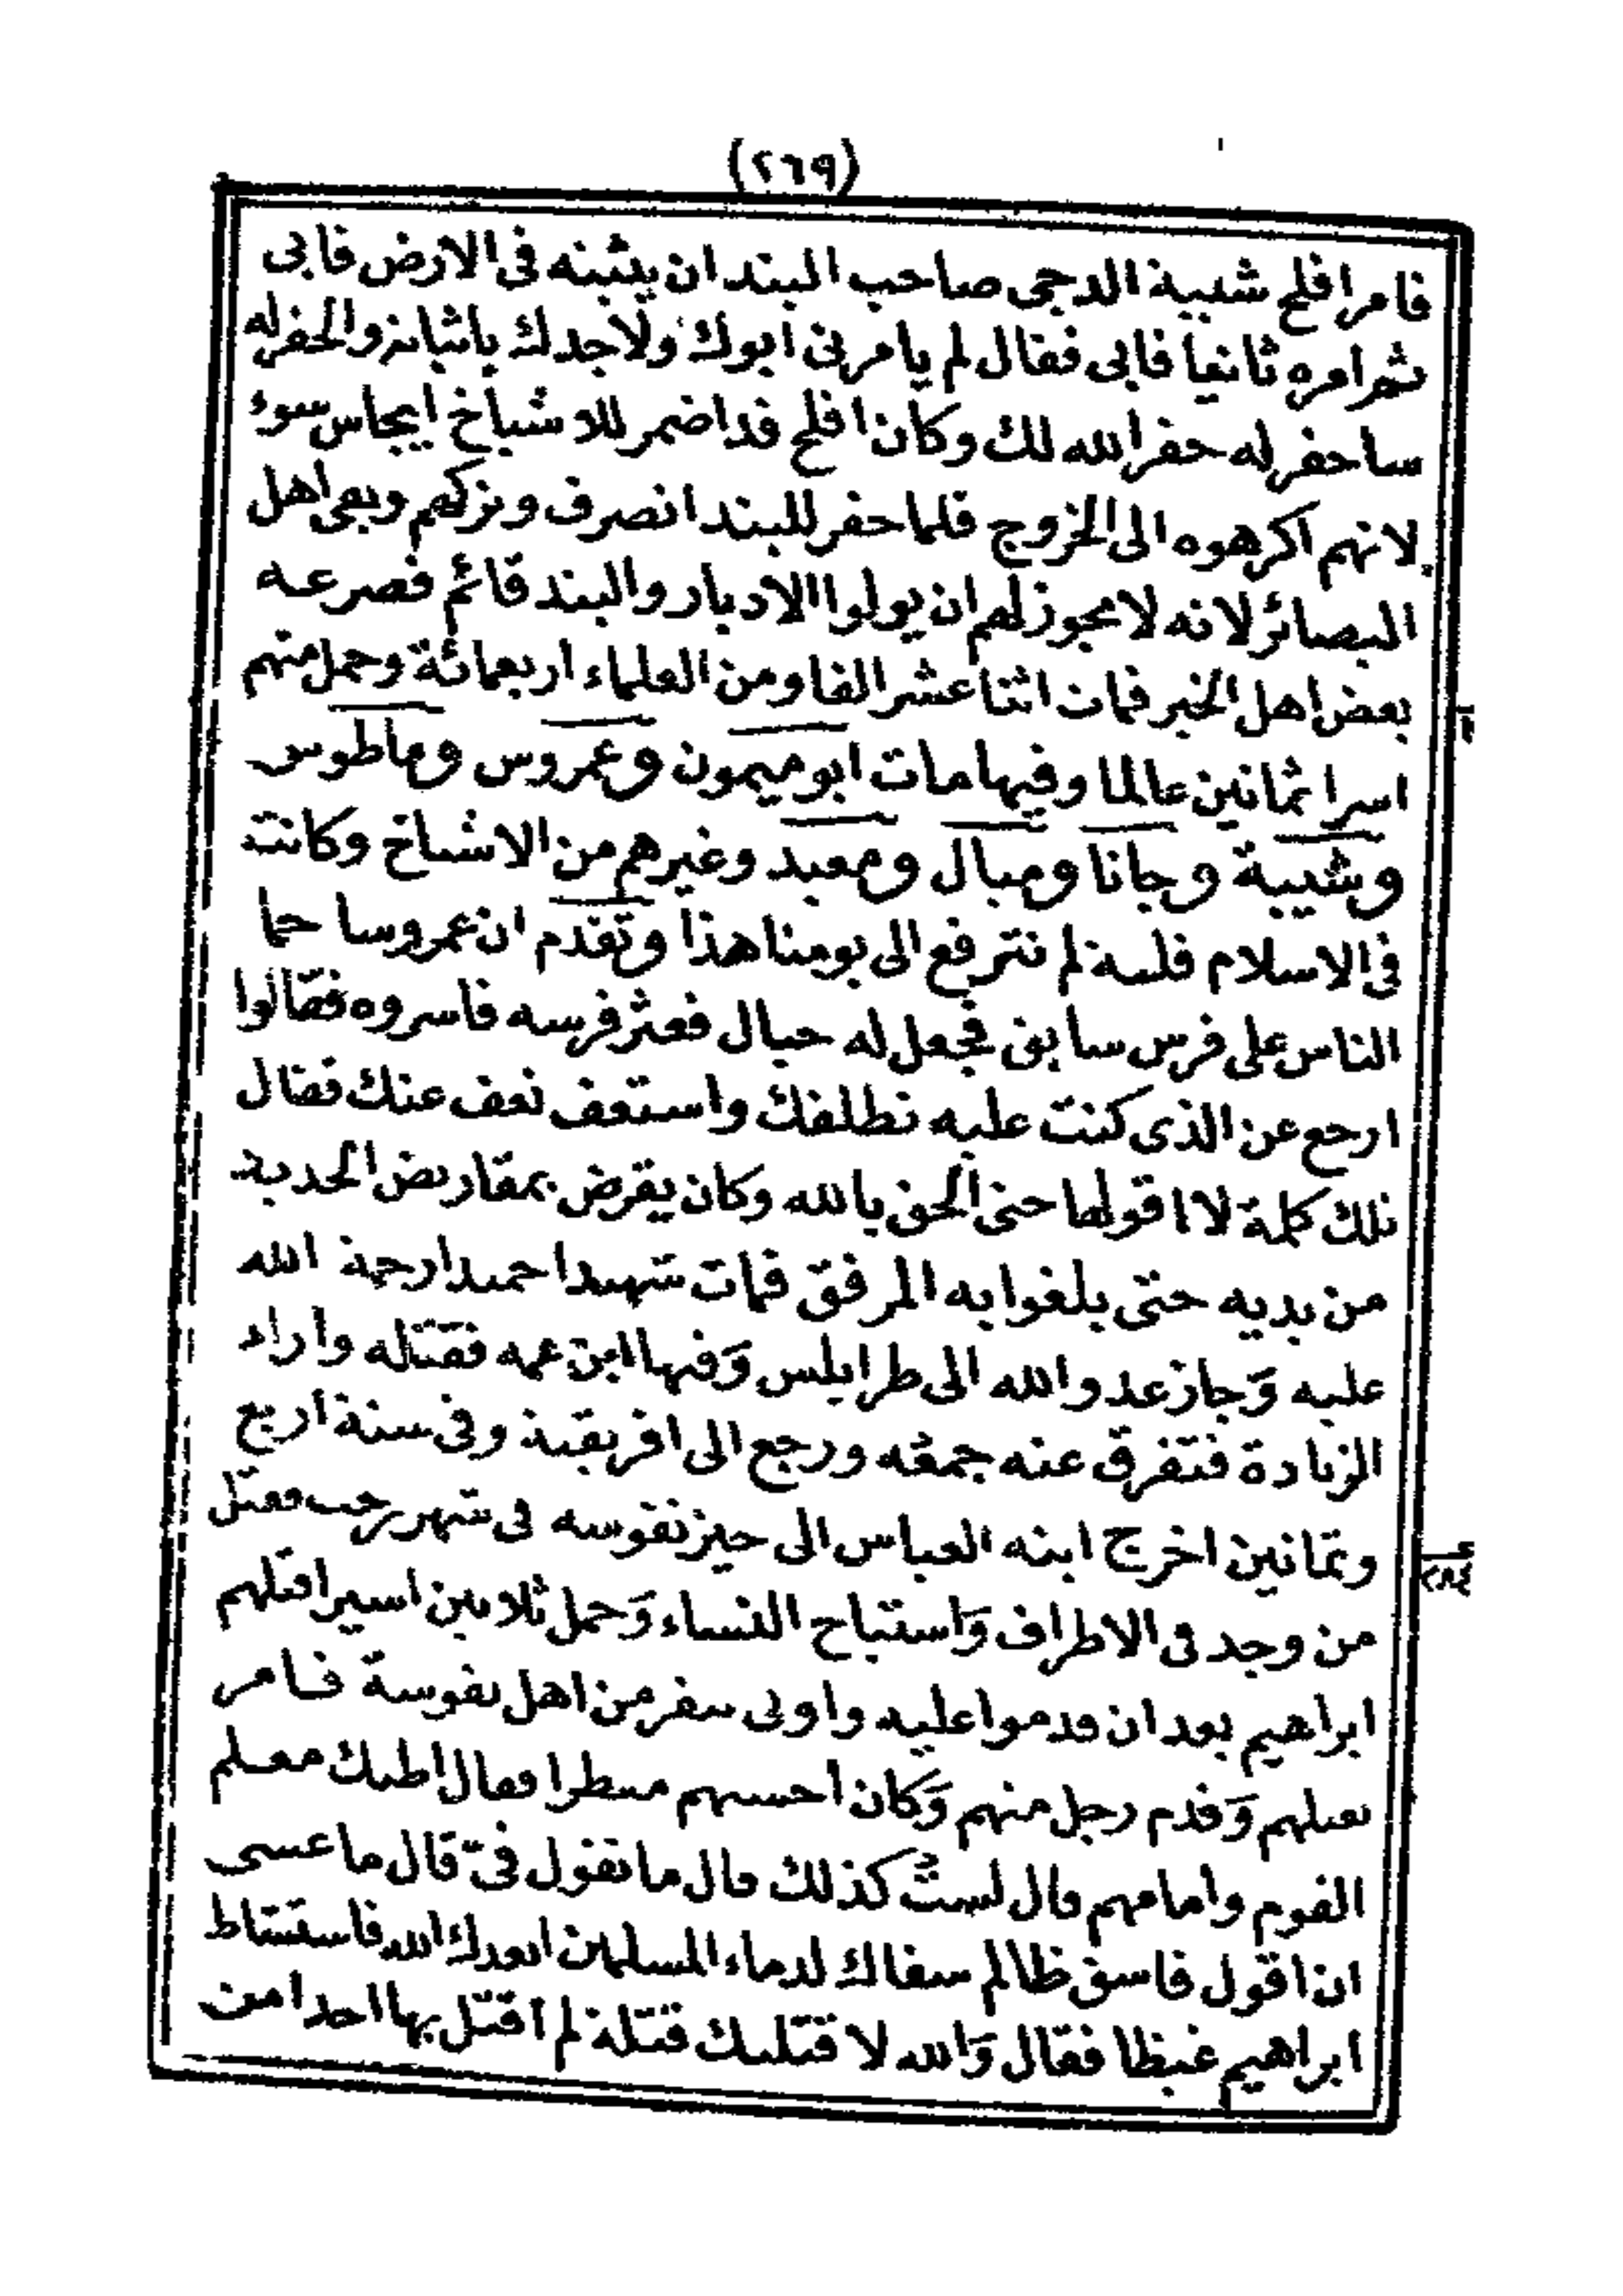 (٢٦٩)
فامر افلح شيبة الدجمى صاحب البند ان يثبته فى الارض فابى
ثم امره ثانيا فابى فقال لم يامرنى ابوك ولاجدك باثباته والحفر له
ساحفر له حفر الله لك وكان افلح قد اضمر للاشياخ ايجاس سوء
لانهم اكرهوه الى الخروج فلما حفر للبند انصرف وتركهم وبقى اهل
البصائر لانه لا يجوز لهم ان يولوا الادبار والبند قائم فصرعه
بعض اهل الخير فمات اثنا عشر الفا ومن العلماء اربعمائة وحمل منهم
اسرا ثمانين عالما وفيها مات ابو ميمون وعمروس وماطوس
وشيبة وجانا وميال ومعبد وغيرهم من الاشياخ وكانت
فى الاسلام فلسة لم تترفع الى يومنا هذا وتقدم ان عمروسا حما
الناس على فرس سابق فجعل له حبال فعثر فرسه فاسروه فقالوا
ارجع عن الذى كنت عليه نطلقك واستعف نعف عنك فقال
تلك كلمة لا اقولها حتى الحق بالله وكان يقرض بمقاريض الحديد
من يديه حتى بلغوا به المرفق فمات شهيدا حميدا رحمة الله
عليه وَجاز عدو الله الى طرابلس وَفيها ابن عمه فقتله واراد
الزيادة فتفرق عنه جمعه ورجع الى افريقية وفى سنة اربع
وثمانين اخرج ابنه العباس الى حيز نفوسه فى شهر رجب فقتل
من وجد فى الاطراف وَاستباح النساء وَحمل ثلاثين اسيرا قتلهم
ابراهيم بعد ان قدموا عليه واوتى بنفر من اهل نفوسة فامر
بقتلهم وَقدم رجل منهم وَكان احسنهم منظرا فقال اظنك معلم
القوم وامامهم قال لست كذلك قال ما تقول فىّ قال ما عسى
ان اقول فاسق ظالم سفاك لدماء المسلمين ابعدك الله فاستشاط
ابراهيم غيظا فقال وَالله لا قتلنك قتلة لم اقتل بها احدا من